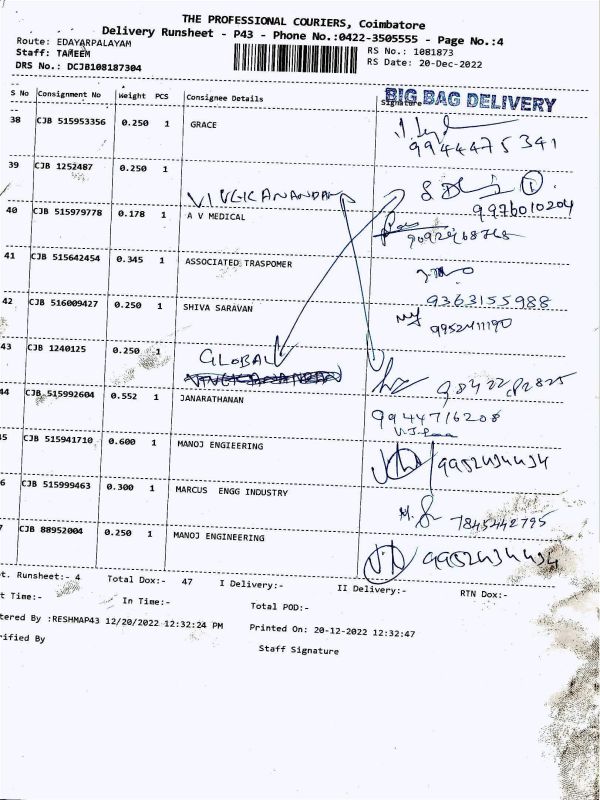 THE PROFESSIONAL COURIERS, Coimbatore
Delivery Runsheet - P43 - Phone No.:0422-3505555 - Page No.:4
Route: EDAYARPALAYAM
RS No.: 1081873
Staff: TAMEEM
RS Date: 20-Dec-2022
DRS No.: DCJB108187304
BIG BAG DELIVERY
S No Consignment No Weight PCS Consignee Details Signature
38 CJB 515953356 0.250 1 GRACE
9944475341
39 CJB 1252487 0.250 1
VIVEKANANDAN
9976010204
40 CJB 515979778 0.178 1 A V MEDICAL
41 CJB 515642454 0.345 1 ASSOCIATED TRASPOMER
9363155988
42 CJB 516009427 0.250 1 SHIVA SARAVAN
9952411190
43 CJB 1240125 0.250 1
GLOBAL
44 CJB 515992604 0.552 1 JANARATHANAN
9944716208
45 CJB 515941710 0.600 1 MANOJ ENGIEERING
9952434434
6 CJB 515999463 0.300 1 MARCUS ENGG INDUSTRY
7845442795
7 CJB 88952004 0.250 1 MANOJ ENGINEERING
9952434434
t. Runsheet:- 4 Total Dox:- 47 I Delivery:- II Delivery:- RTN Dox:-
t Time:- In Time:- Total POD:-
tered By :RESHMAP43 12/20/2022 12:32:24 PM Printed On: 20-12-2022 12:32:47
rified By Staff Signature